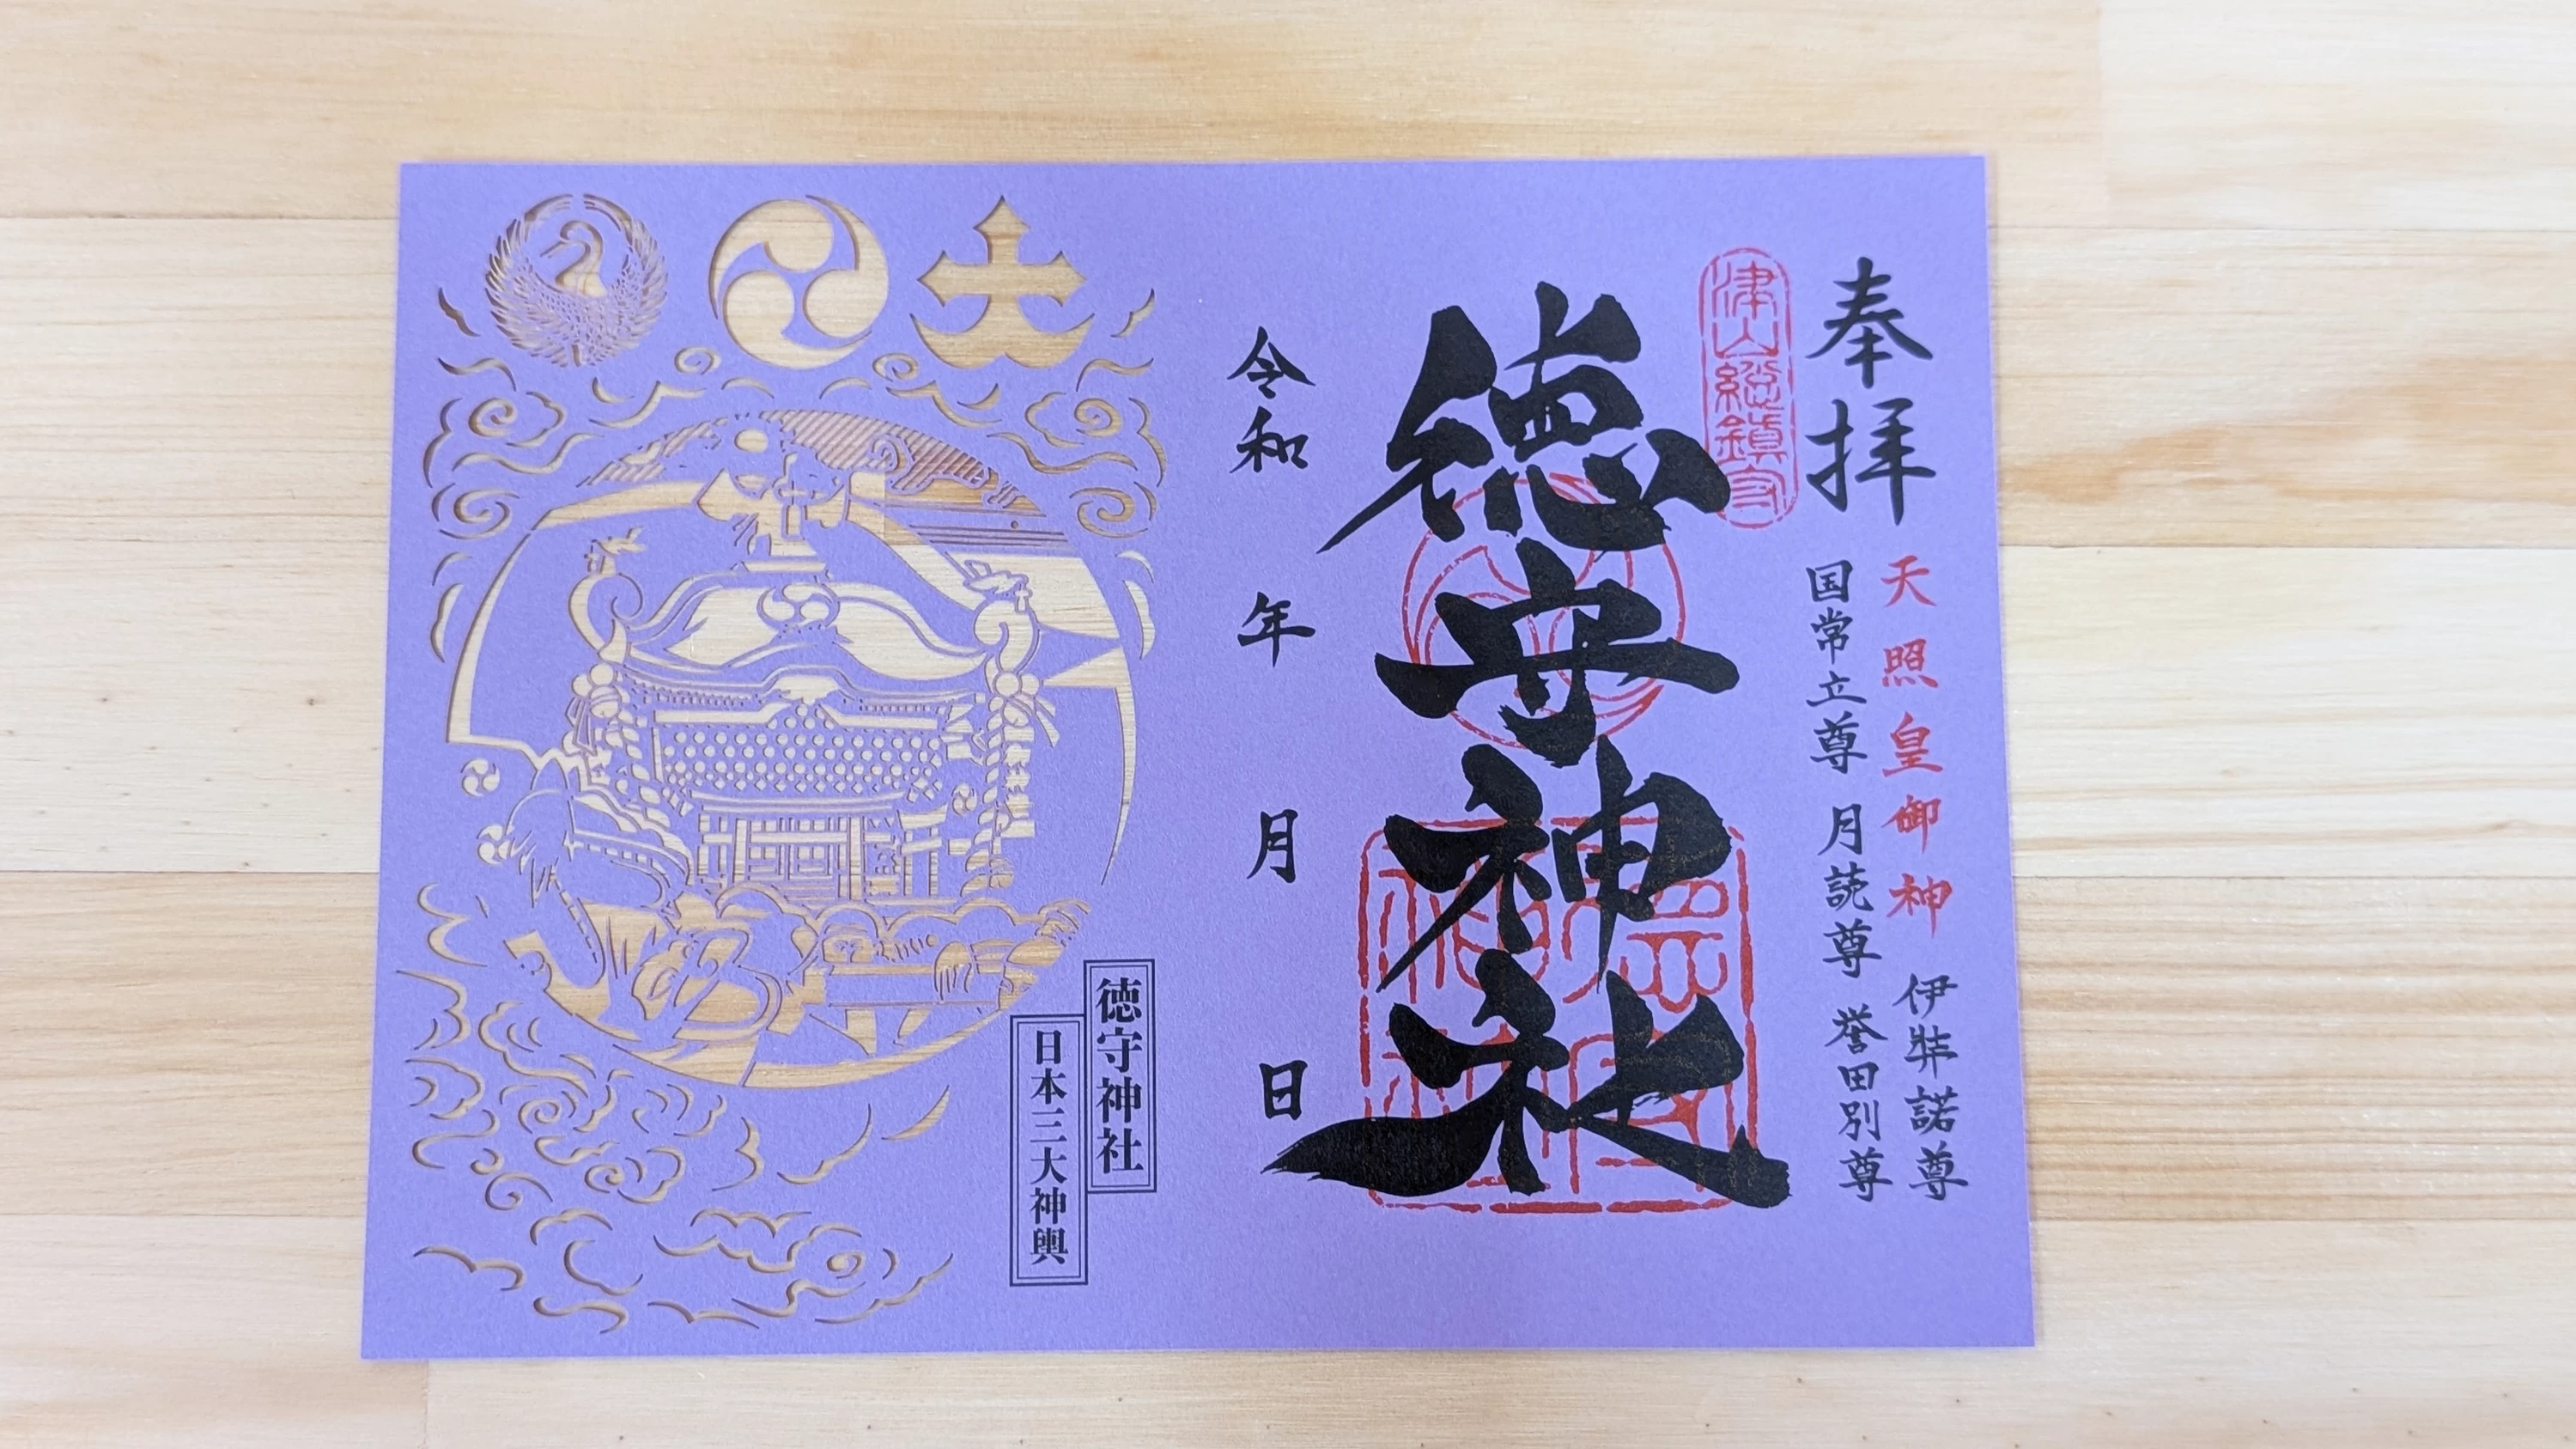 奉拝
天照皇御神
伊弉諾尊
国常立尊 月読尊 誉田別尊
津山総鎮守
徳守神社
令和 年 月 日
徳守神社
日本三大神輿